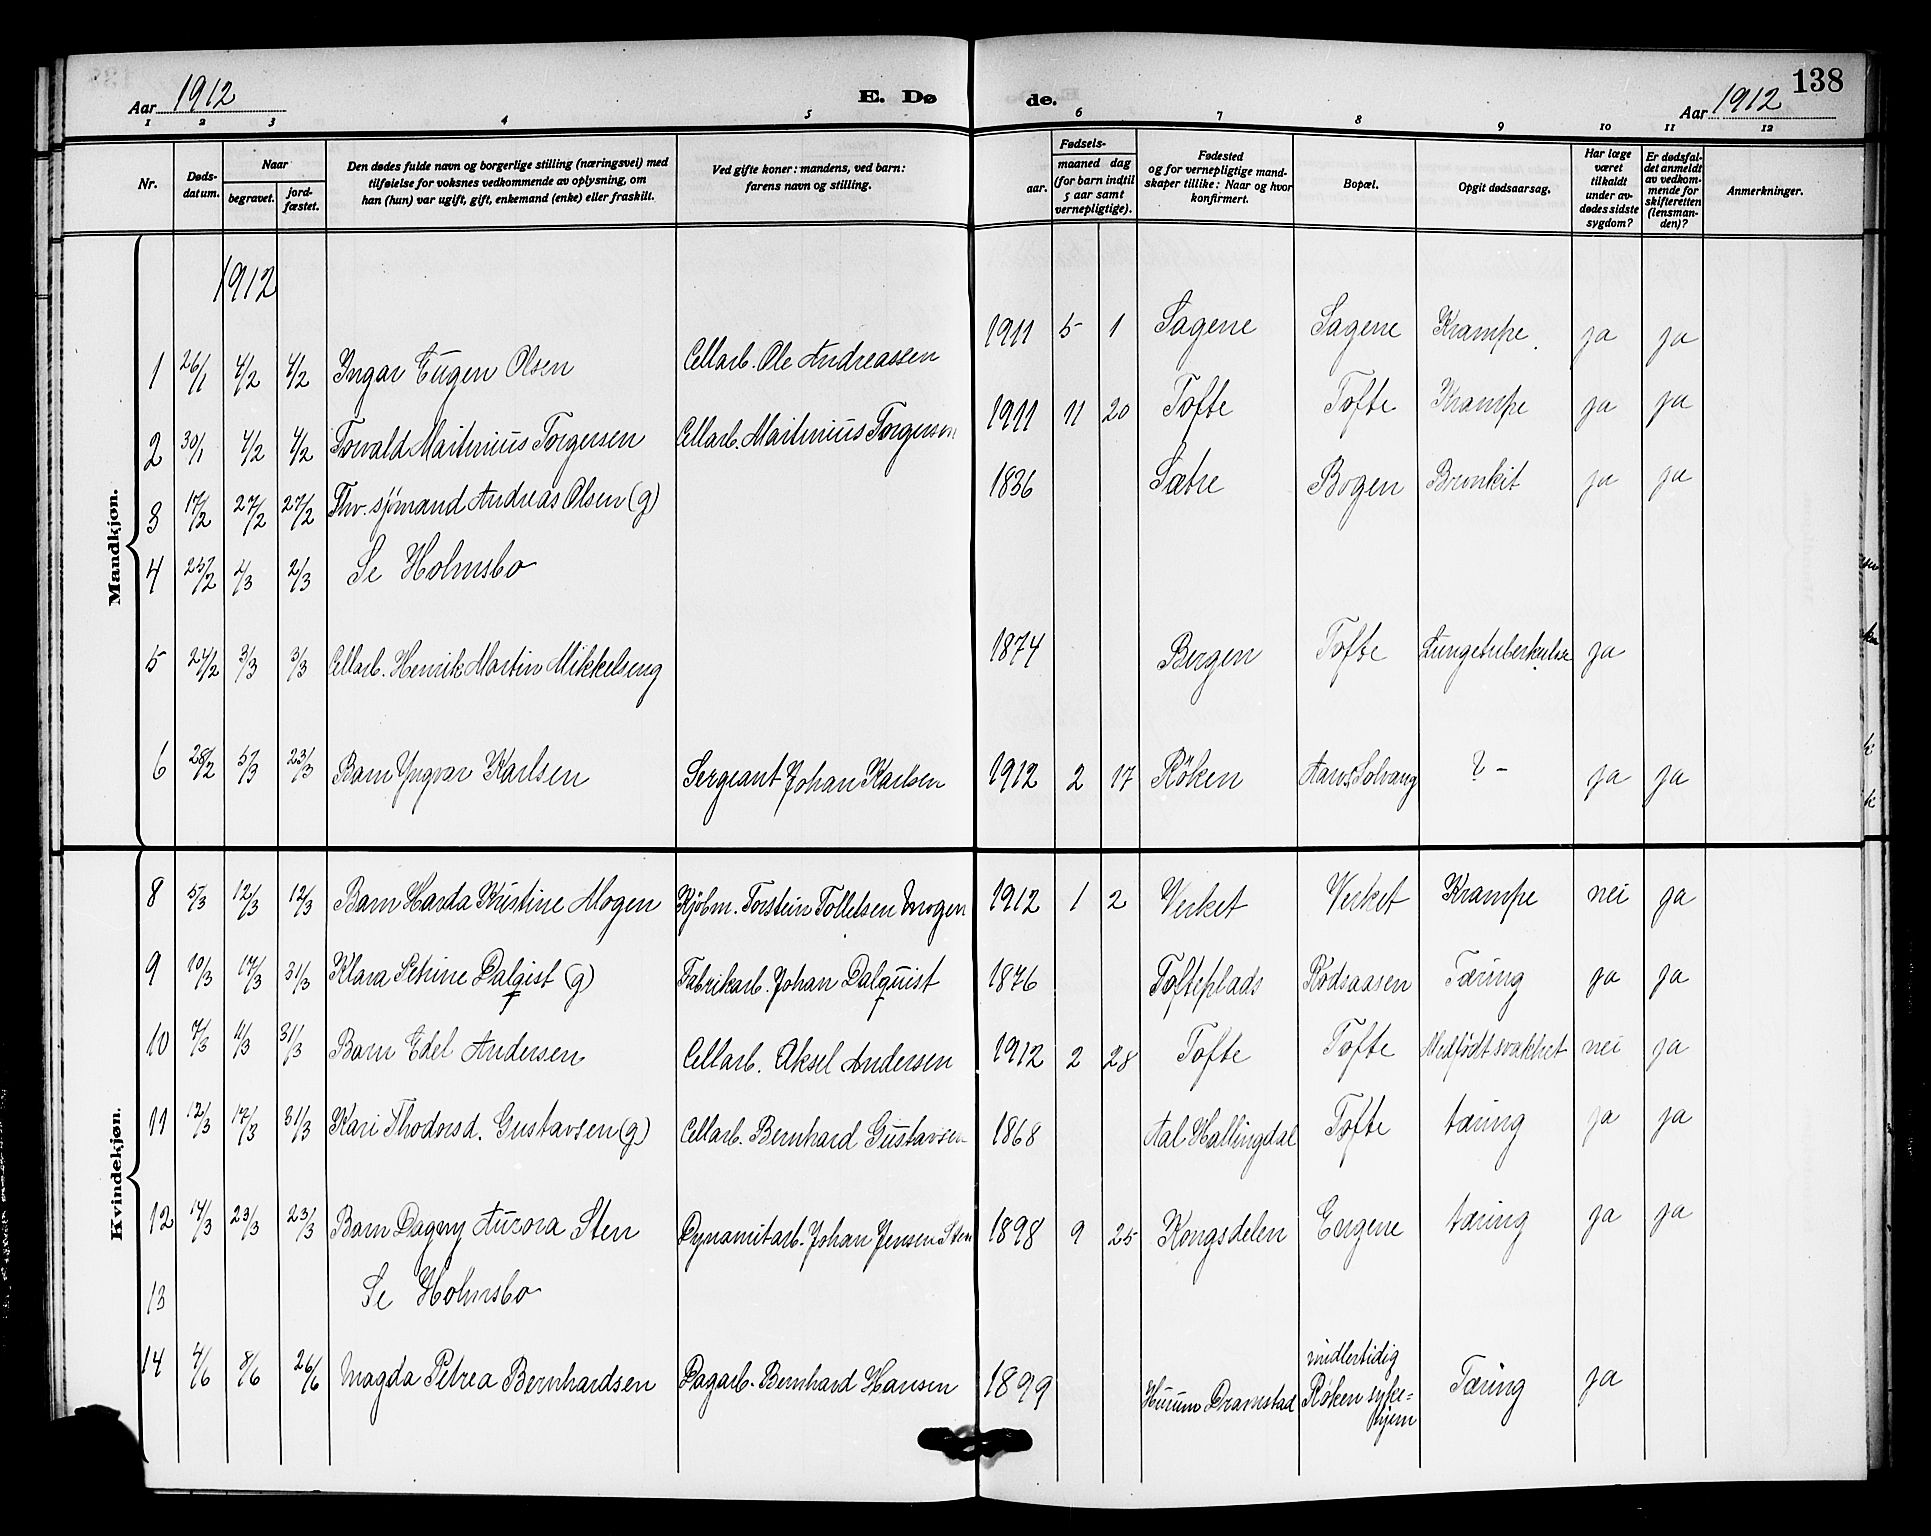 138
Aar 1912 E. Dø de. Aar 1912
1 2 3 4 5 6 7 8 9 10 11 12
Nr. Døds-datum. Naar begravet. jord-fæstet. Den dødes fulde navn og borgerlige stilling (næringsvei) med tilføielse for voksnes vedkommende av oplysning, om han (hun) var ugift, gift, enkemand (enke) eller fraskilt. Ved gifte koner: mandens, ved barn: farens navn og stilling. Fødsels- aar. maaned dag (for barn indtil 5 aar samt vernepligtige). Fødested og for vernepligtige mand-skaper tillike: Naar og hvor konfirmert. Bopæl. Opgit dødsaarsag. Har læge været tilkaldt under av-dødes sidste sygdom? Er dødsfal-det anmeldt av vedkom-mende for skifteretten (lensman-den)? Anmerkninger.
Mandkjøn.
1912
1 26/1 4/2 4/2 Yngar Eugen Olsen Cellarb. Ole Andreassen 1911 5 1 Sagene Sagene Krampe. ja ja
2 30/1 4/2 4/2 Torvald Martinius Torgersen Cellarb. Martinius Torgersen 1911 11 20 Tofte Tofte Krampe ja ja
3 17/2 27/2 27/2 Fhv. sjømand Andreas Olsen (g) 1836 Sætre Bogen Bronkit ja ja
4 25/2 2/3 2/3 Se Holmsbo
5 24/2 3/3 3/3 Cellarb. Henrik Martin Mikkelsen g 1874 Bergen Tofte Lungetuberkulose ja
6 28/2 5/3 23/3 Barn Yngvar Karlsen Sergeant Johan Karlsen 1912 2 17 Røken Solvang ? - ja ja
Kvindekjøn.
8 5/3 12/3 12/3 Barn Harda Kristine Mogen Kjøbm. Torstein Tollefsen Mogen 1912 1 2 Verket Verket Krampe nei ja
9 10/3 17/3 31/3 Klara Petrine Dalqist (g) Fabrikarb. Johan Dalquist 1876 Tofteplads Rødsaasen Tæring ja ja
10 7/3 4/3 31/3 Barn Edel Andersen Cellarb. Aksel Andersen 1912 2 28 Tofte Tofte Medfødt svakhet nei ja
11 12/3 17/3 31/3 Kari Thodorsd. Gustavsen (g) Cellarb. Bernhard Gustavsen 1868 Aal Hallingdal Tofte tæring ja ja
12 14/3 23/3 23/3 Barn Dagny Aurora Sten Dynamitarb. Johan Jensen Sten 1898 9 25 Kongsdelen Engene tæring ja ja
13 Se Holmsbo
14 4/6 8/6 26/6 Magda Petrea Bernhardsen Dagarb. Bernhard Hansen 1899 Hurum Dramstad midlertidig Røken syke=hjem Tæring ja